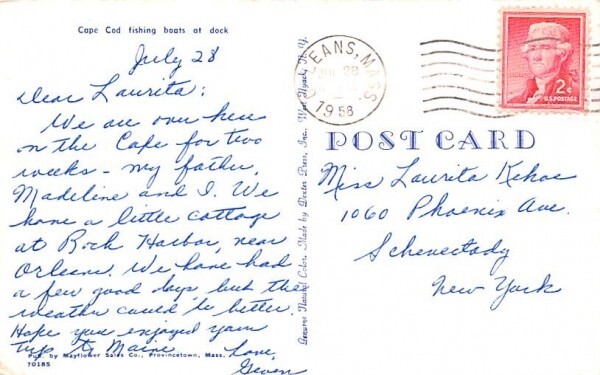 Cape Cod fishing boats at dock
July 28
Dear Laurita:
We are over here
on the Cape for two
weeks - my father,
Madeline and I. We
have a little cottage
at Rock Harbor, near
Orleans. We have had
a few good days but the
weather could be better.
Hope you enjoyed your
trip to Maine
Love,
Gwen
Pub. by Mayflower Sales Co., Provincetown, Mass.
70185
Genuine Natural Color. Made by Dexter Press, Inc., West Nyack, N. Y.
ORLEANS, MASS
JUL 28
1958
2¢
U.S. POSTAGE
POST CARD
Miss Laurita Kehoe
1060 Phoenix Ave.
Schenectady
New York